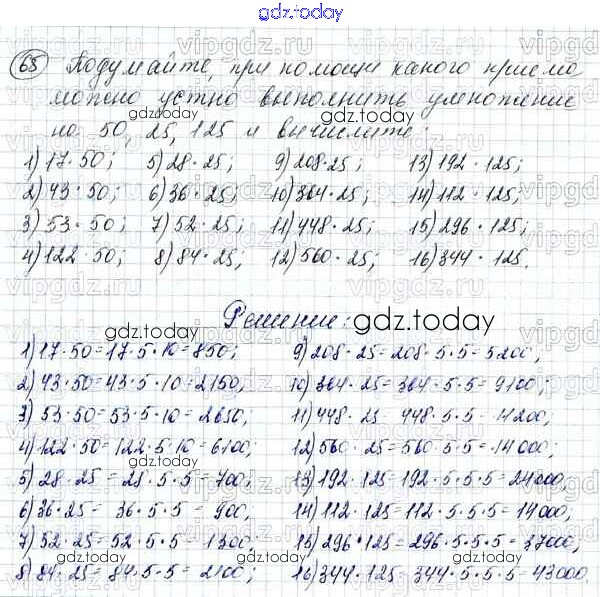 gdz.today
68 Подумайте, при помощи какого приема
можно устно выполнить умножение
на 50, 25, 125 и вычислите:
1) 17 · 50; 5) 28 · 25; 9) 208 · 25; 13) 192 · 125;
2) 43 · 50; 6) 36 · 25; 10) 364 · 25; 14) 112 · 125;
3) 53 · 50; 7) 52 · 25; 11) 448 · 25; 15) 296 · 125;
4) 122 · 50; 8) 84 · 25; 12) 560 · 25; 16) 344 · 125.
Решение:
1) 17 · 50 = 17 · 5 · 10 = 850;
2) 43 · 50 = 43 · 5 · 10 = 2150;
3) 53 · 50 = 53 · 5 · 10 = 2650;
4) 122 · 50 = 122 · 5 · 10 = 6100;
5) 28 · 25 = 28 · 5 · 5 = 700;
6) 36 · 25 = 36 · 5 · 5 = 900;
7) 52 · 25 = 52 · 5 · 5 = 1300;
8) 84 · 25 = 84 · 5 · 5 = 2100;
9) 208 · 25 = 208 · 5 · 5 = 5200;
10) 364 · 25 = 364 · 5 · 5 = 9100;
11) 448 · 25 = 448 · 5 · 5 = 11200;
12) 560 · 25 = 560 · 5 · 5 = 14000;
13) 192 · 125 = 192 · 5 · 5 · 5 = 24000;
14) 112 · 125 = 112 · 5 · 5 · 5 = 14000;
15) 296 · 125 = 296 · 5 · 5 · 5 = 37000;
16) 344 · 125 = 344 · 5 · 5 · 5 = 43000.